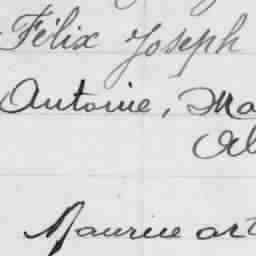 Félix Joseph
Antoine, Ma
Al
Maurice art